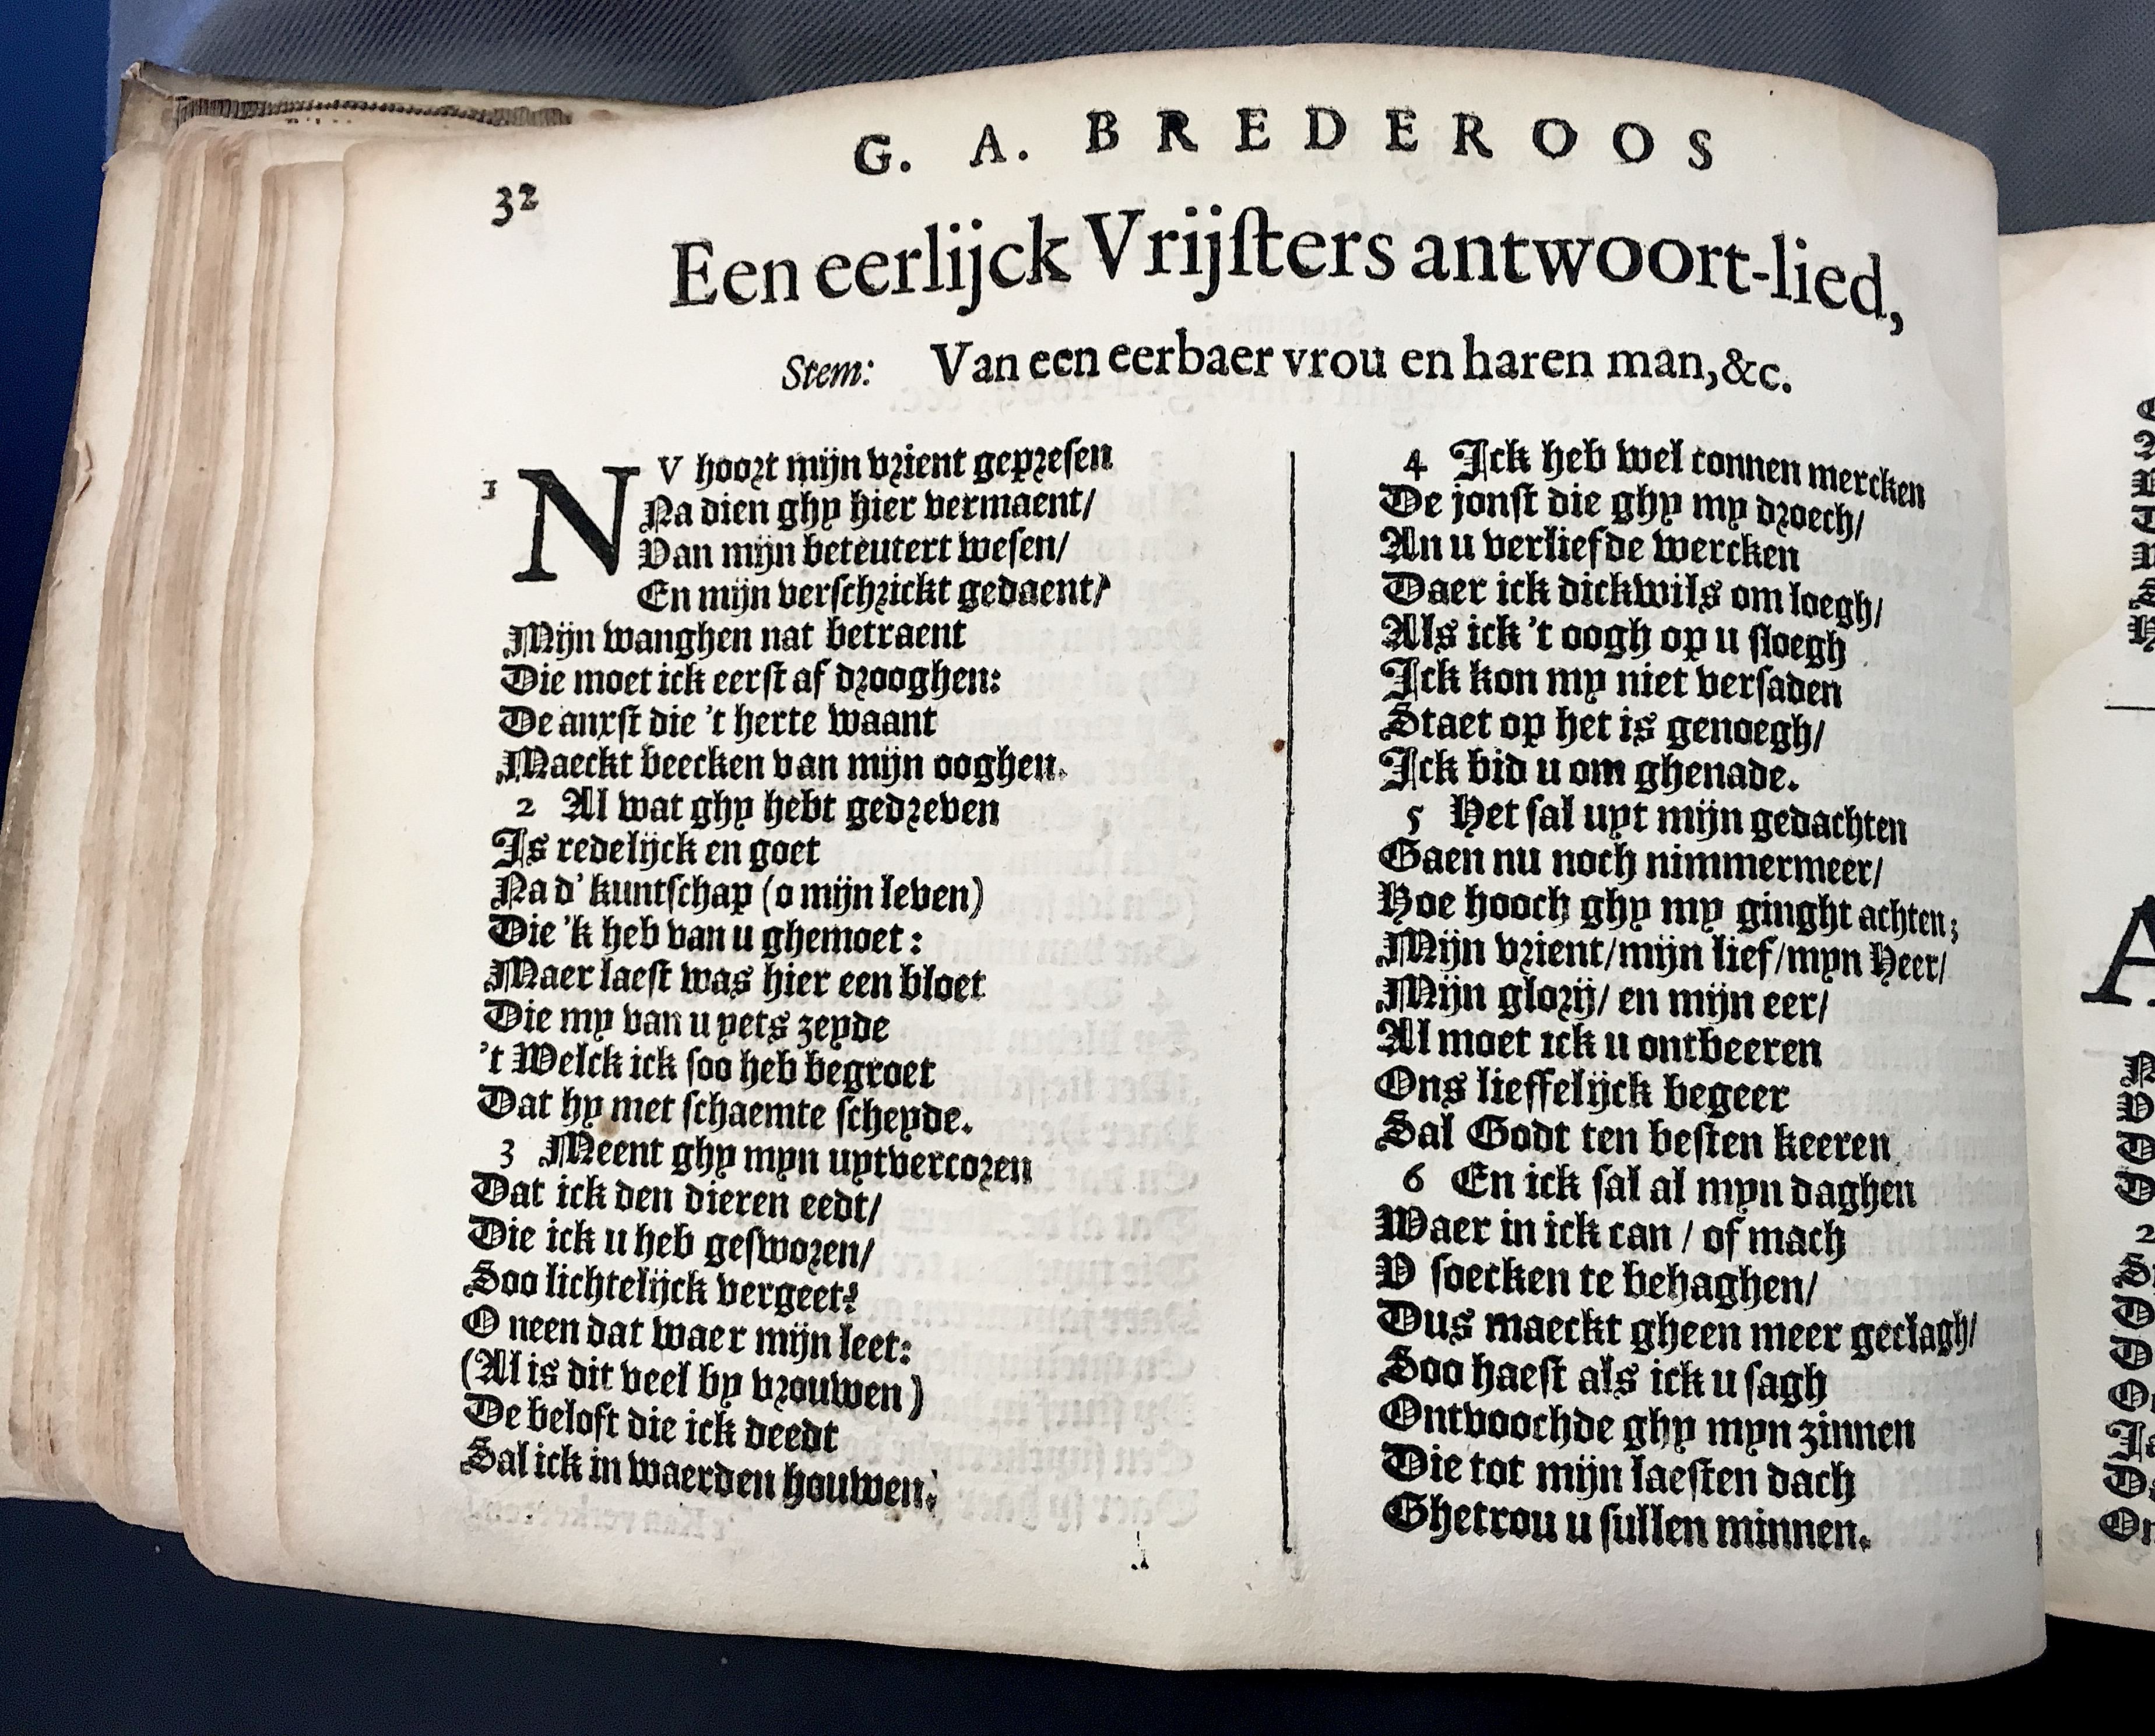 G. A. BREDEROOS
32
Een eerlijck Vrijsters antwoort-lied,
Stem: Van een eerbaer vrou en haren man, &c.
1 NV hoort mijn vrient gepresen
Na dien ghy hier vermaent/
Van mijn beteutert wesen/
En mijn verschrickt gedaent/
Mijn wanghen nat betraent
Die moet ick eerst af drooghen:
De anxst die 't herte waant
Maeckt beecken van mijn ooghen.
2 Al wat ghy hebt gedreven
Is redelijck en goet
Na d' kuntschap (o mijn leven)
Die 'k heb van u ghemoet:
Maer laest was hier een bloet
Die my van u yets zeyde
't Welck ick soo heb begroet
Dat hy met schaemte scheyde.
3 Meent ghy myn uytvercoren
Dat ick den dieren eedt/
Die ick u heb gesworen/
Soo lichtelijck vergeet?
O neen dat waer mijn leet:
(Al is dit veel by vrouwen)
De beloft die ick deedt
Sal ick in waerden houwen.
4 Ick heb wel connen mercken
De jonst die ghy my droech/
An u verliefde wercken
Daer ick dickwils om loegh/
Als ick 't oogh op u sloegh
Ick kon my niet versaden
Staet op het is genoegh/
Ick bid u om ghenade.
5 Het sal uyt mijn gedachten
Gaen nu noch nimmermeer/
Hoe hooch ghy my ginght achten;
Mijn vrient/mijn lief/myn Heer/
Mijn glorij/ en mijn eer/
Al moet ick u ontbeeren
Ons lieffelijck begeer
Sal Godt ten besten keeren
6 En ick sal al myn daghen
Waer in ick can / of mach
V soecken te behaghen/
Dus maeckt gheen meer geclagh/
Soo haest als ick u sagh
Ontvoochde ghy myn zinnen
Die tot mijn laesten dach
Ghetrou u sullen minnen.